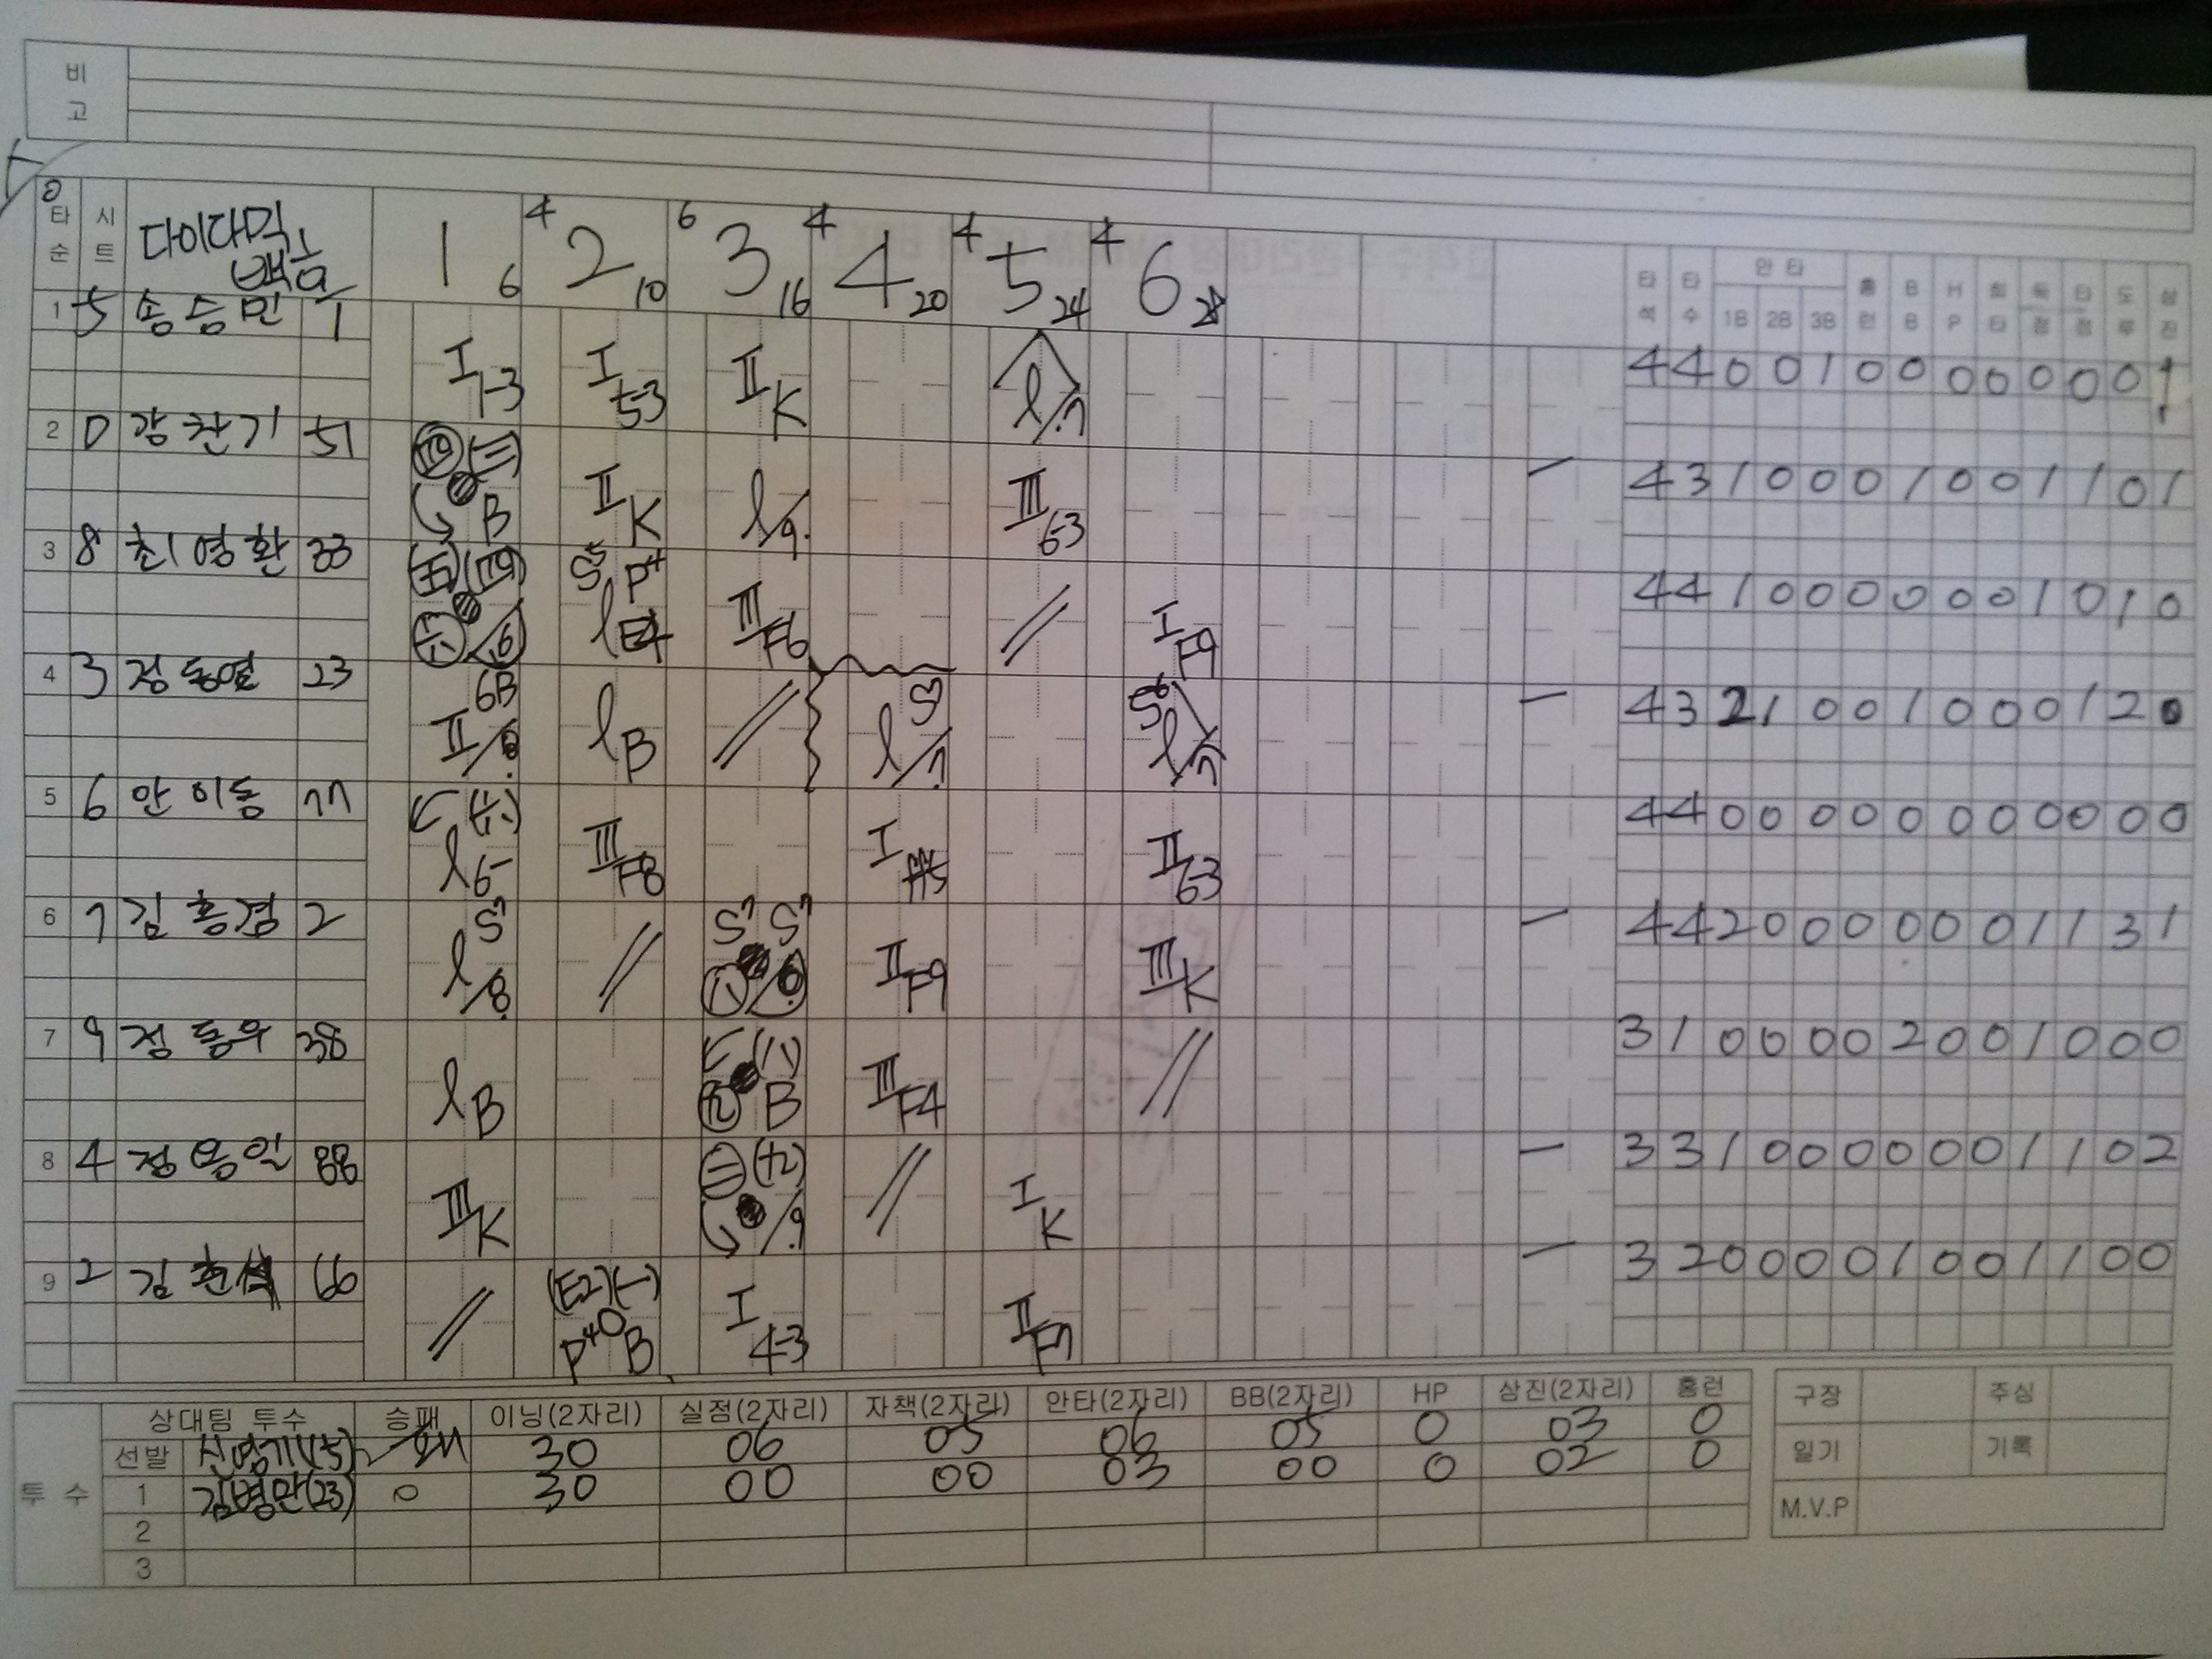 비고
타순 시트 다이다믹 1 6 4 2 10 6 3 16 4 4 20 4 5 24 4 6 28 타석 타수 안타 1B 2B 3B 홈런 BB HP 희타 득점 타점 도루 삼진
1 5 송승민 1 I 1-3 I 5-3 II K l /7 4 4 0 0 1 0 0 0 0 0 0 0
2 0 강찬기 51 B II K l /9 III 6-3 4 3 1 0 0 0 1 0 0 1 1 0 1
3 8 최영환 33 S5 P4 III F6 // I F9 4 4 1 0 0 0 0 0 0 1 0 1 0
4 3 정동열 23 6B II l B // S l /7 S6 l /7 4 3 2 1 0 0 1 0 0 0 1 2 0
5 6 안이동 77 l 6- III F8 I II 6-3 4 4 0 0 0 0 0 0 0 0 0 0 0
6 7 김홍경 2 S7 l /8 // S7 S7 II F9 III K 4 4 2 0 0 0 0 0 0 1 1 3 1
7 9 정동우 38 l B B III F4 // 3 1 0 0 0 0 2 0 0 1 0 0 0
8 4 정용일 88 III K /9 // I K 3 3 1 0 0 0 0 0 0 1 1 0 2
9 2 김 66 // (E2) P4 B I 4-3 II F7 3 2 0 0 0 0 1 0 0 1 1 0 0
투수 상대팀 투수 승패 이닝(2자리) 실점(2자리) 자책(2자리) 안타(2자리) BB(2자리) HP 삼진(2자리) 홈런 구장 주심
선발 신영기(15) 패 30 06 05 06 05 0 03 0 일기 기록
1 김병만(23) 0 30 00 00 03 00 0 02 0 M.V.P
2
3